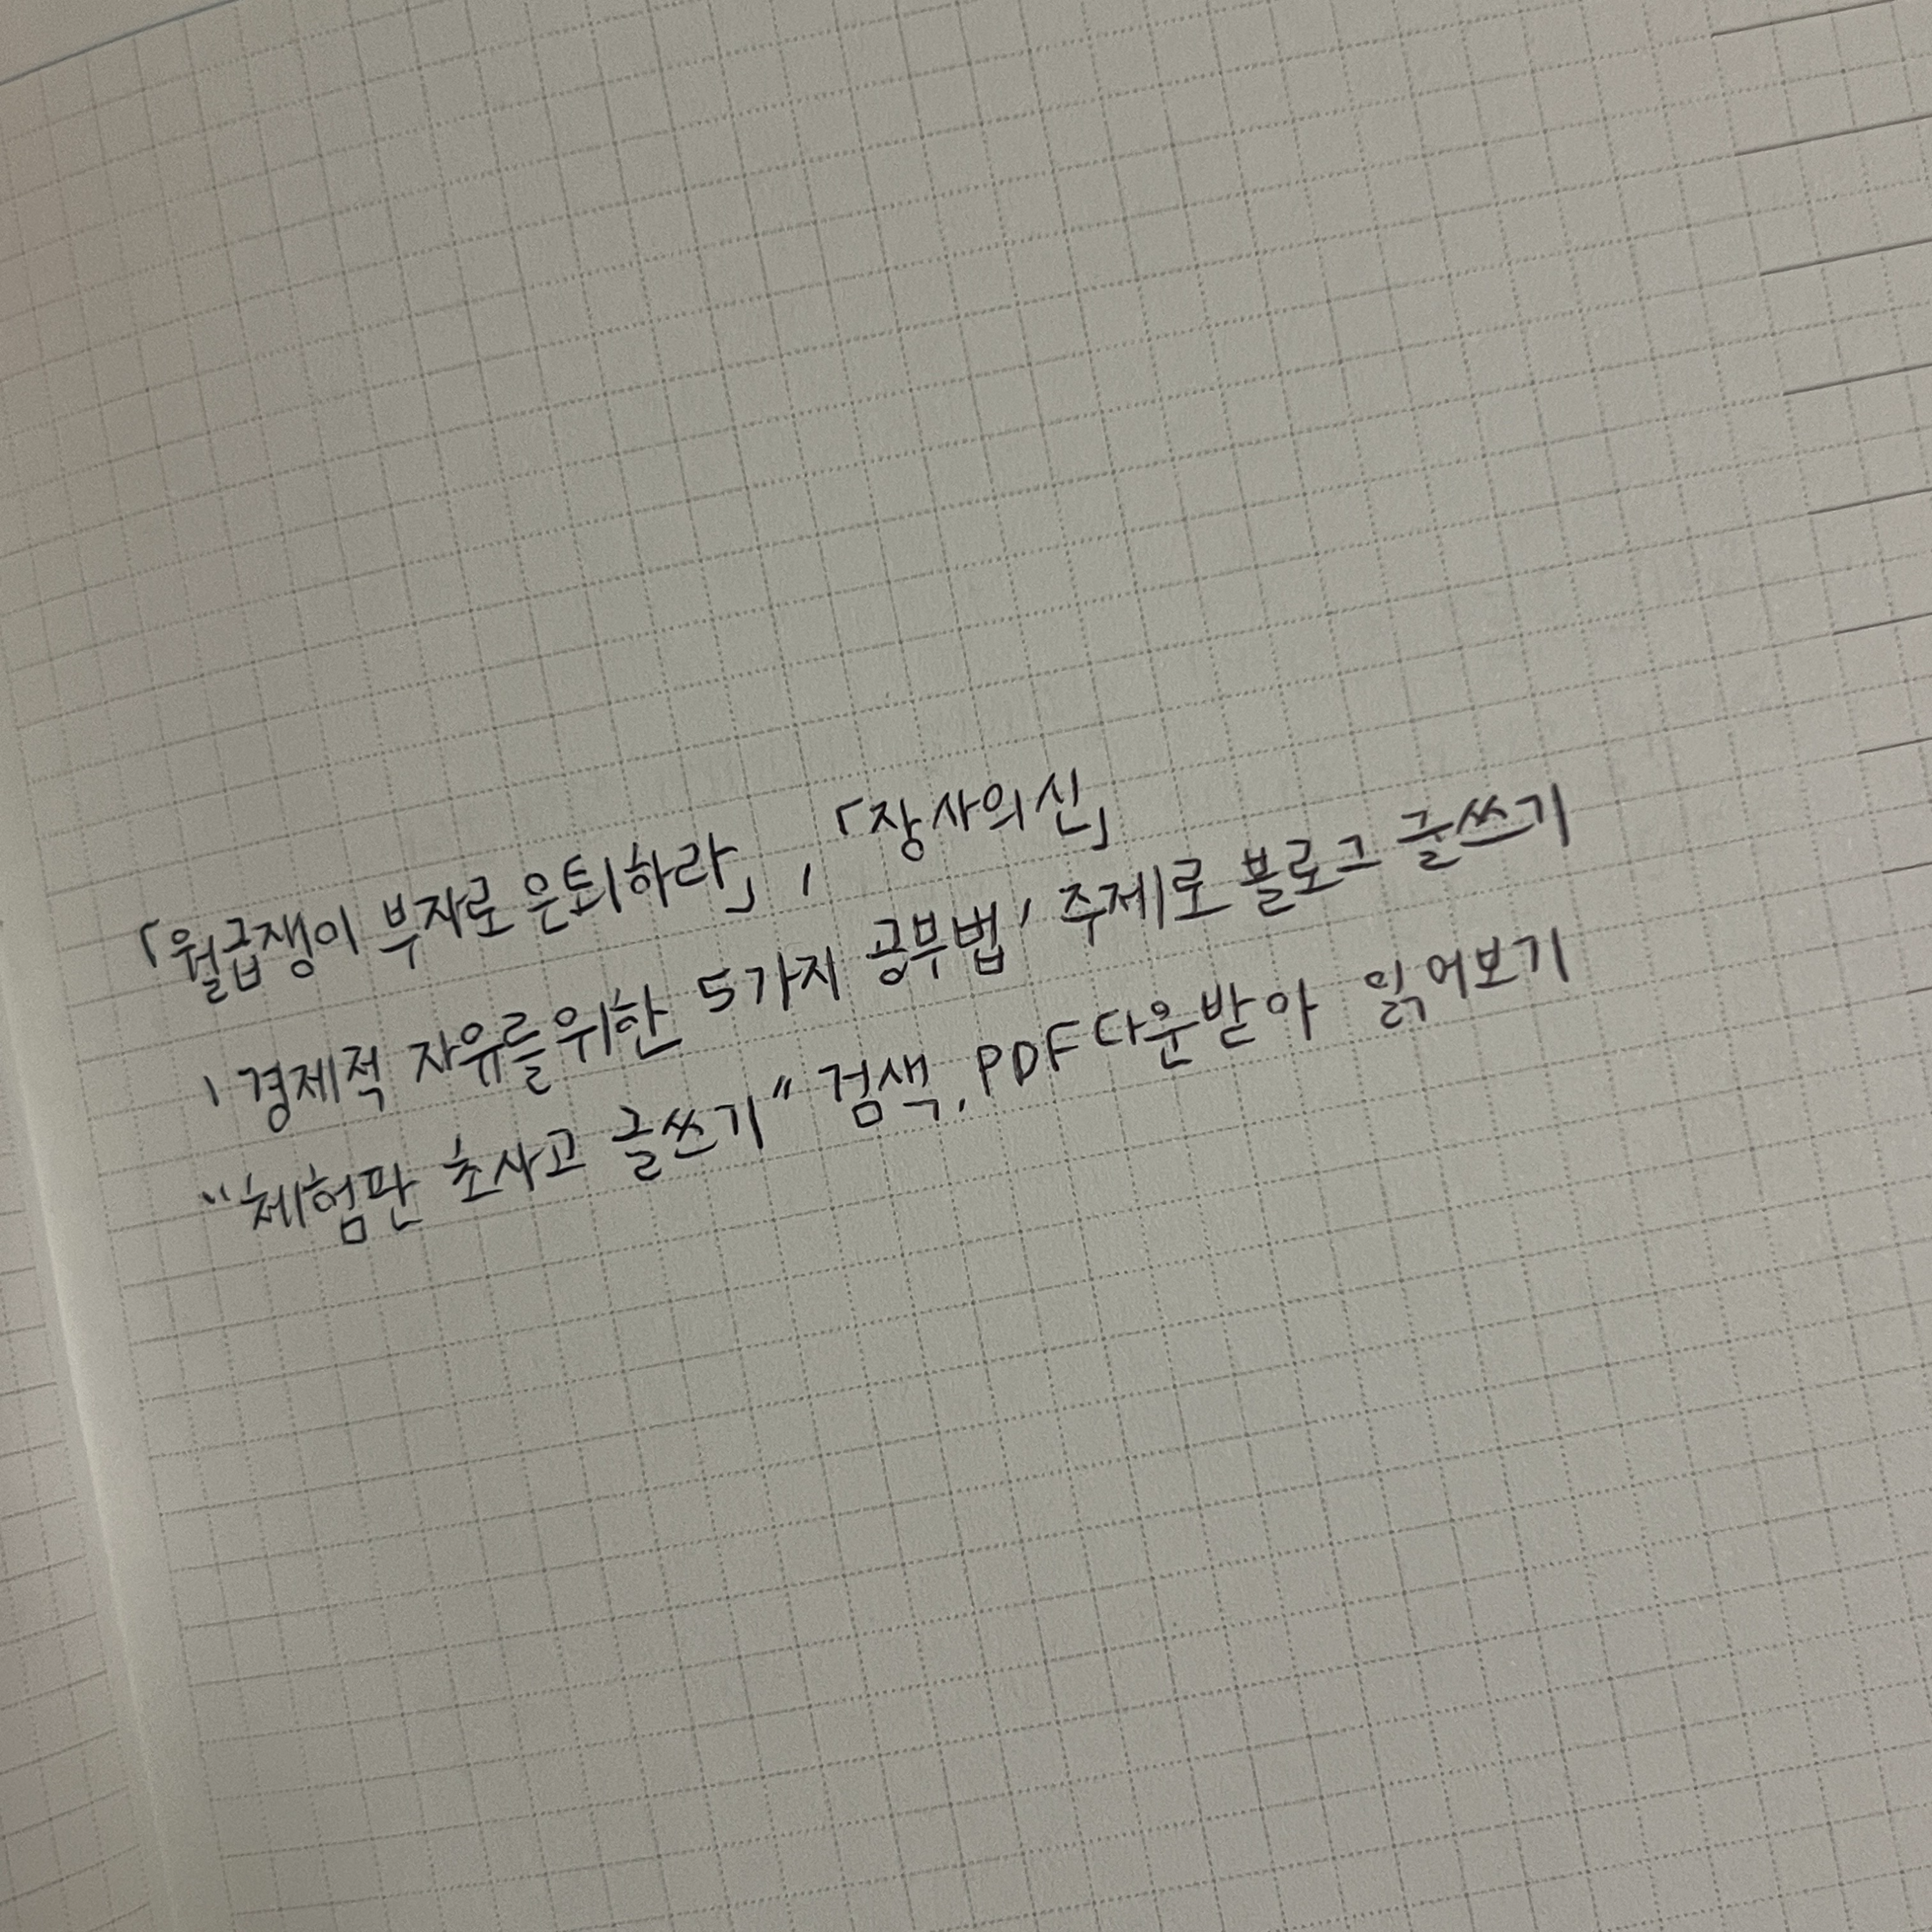 「월급쟁이 부자로 은퇴하라」, 「장사의 신」
'경제적 자유를 위한 5가지 공부법' 주제로 블로그 글쓰기
"체험판 초사고 글쓰기" 검색, PDF 다운받아 읽어보기